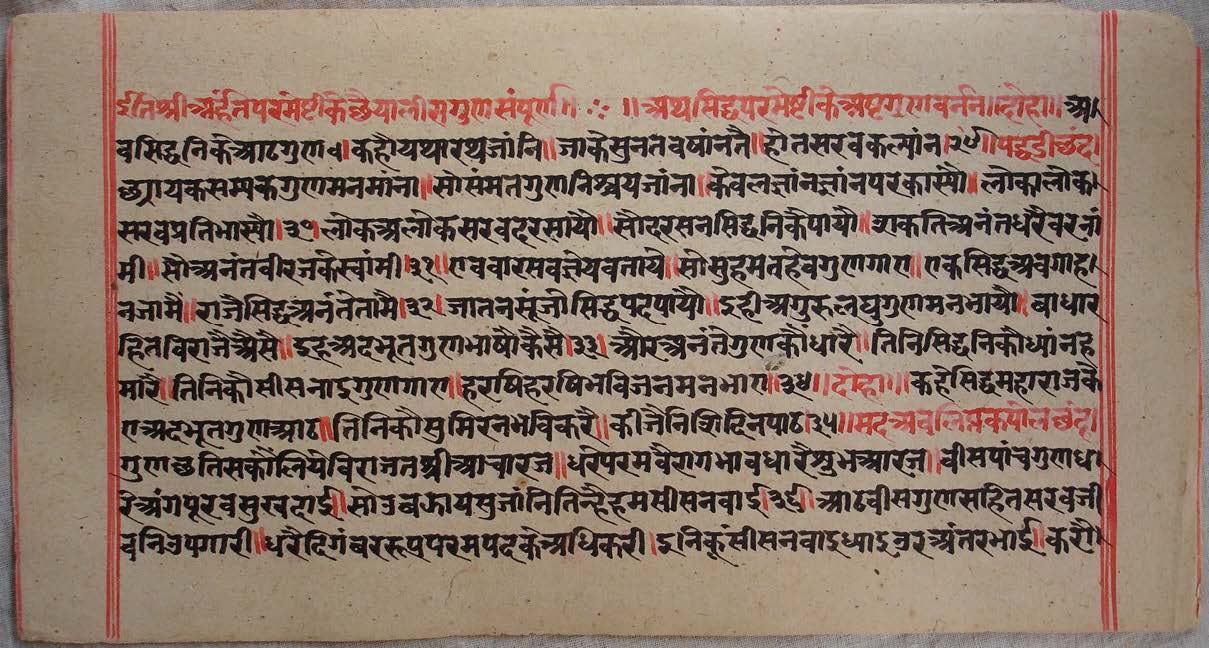 ईतिश्रीअर्हंतपरमेष्टीकेछैयालीसगुणसंपूर्ण॥ ॥अथसिद्धपरमेष्टीकेअष्टगुणवर्नन॥दोहा॥अ।
बसिद्धनिकेआठगुण॥कहौयथारथजांनि॥जाकेसुनतबषांनतै॥होतसरवकल्यांन।२९॥पद्धडीछंद।
छ्यायकसम्यकगुणमनमांना॥सोसंमतगुणनिश्चयजांना॥केवलज्ञांनज्ञांनपरकास्यौ॥लोकालोक।
सरवप्रतिभास्यौ।३०लोकअलोकसरवदरसायौ॥सौदरसनसिद्धनिकैपायौ॥शकतिअनंतधरैवरनां
मी॥सौअनंतवीरजकेस्वांमी।३१॥एववारसवज्ञेयवताये॥सोसुहमतहेवगुणगाए॥एकसिद्धअवगाह।
नजामै॥राजैसिद्धअनंतेतामै।३२।जातनसूंजोसिद्धपदपायौ॥इहीअगुरुलघुगुणमनभायौ॥वाधार
हितविराजैअैसै॥इहअदभूतगुणभाषौकैसै॥३३।औरअनंतेगुणकौंधारै॥तिनिसिद्धनिकौध्यांनह
मारै॥तिनिकौसीसनाइगुणगाए॥हरषिहरषिभविजनमनभाए॥३४॥दोहा॥कहेसिद्धमहाराजकै
एअदभूतगुणआठ॥तिनिकौसुमिरनभविकरै॥कीजैनिशिदिनपाठ।३५॥मदअवलिप्तकपोलछंद।
गुणछतिसकौंलियेविराजतश्रीआचारज॥धरेपरमवैरागभावधारैशुभआरज॥वीसपांचगुणध।
रेअंगपूरवसुखदाई॥सोउवझायसुजांनितिन्हैहमसीसनवाई।३६॥आठवीसगुणसहितसरवजी
वनिउपगारी॥धरैदिगंबररुपपरमपदकेअधिकरी।इनिकूंसीसनवाइधाइउरअंतरभाई॥करौ।